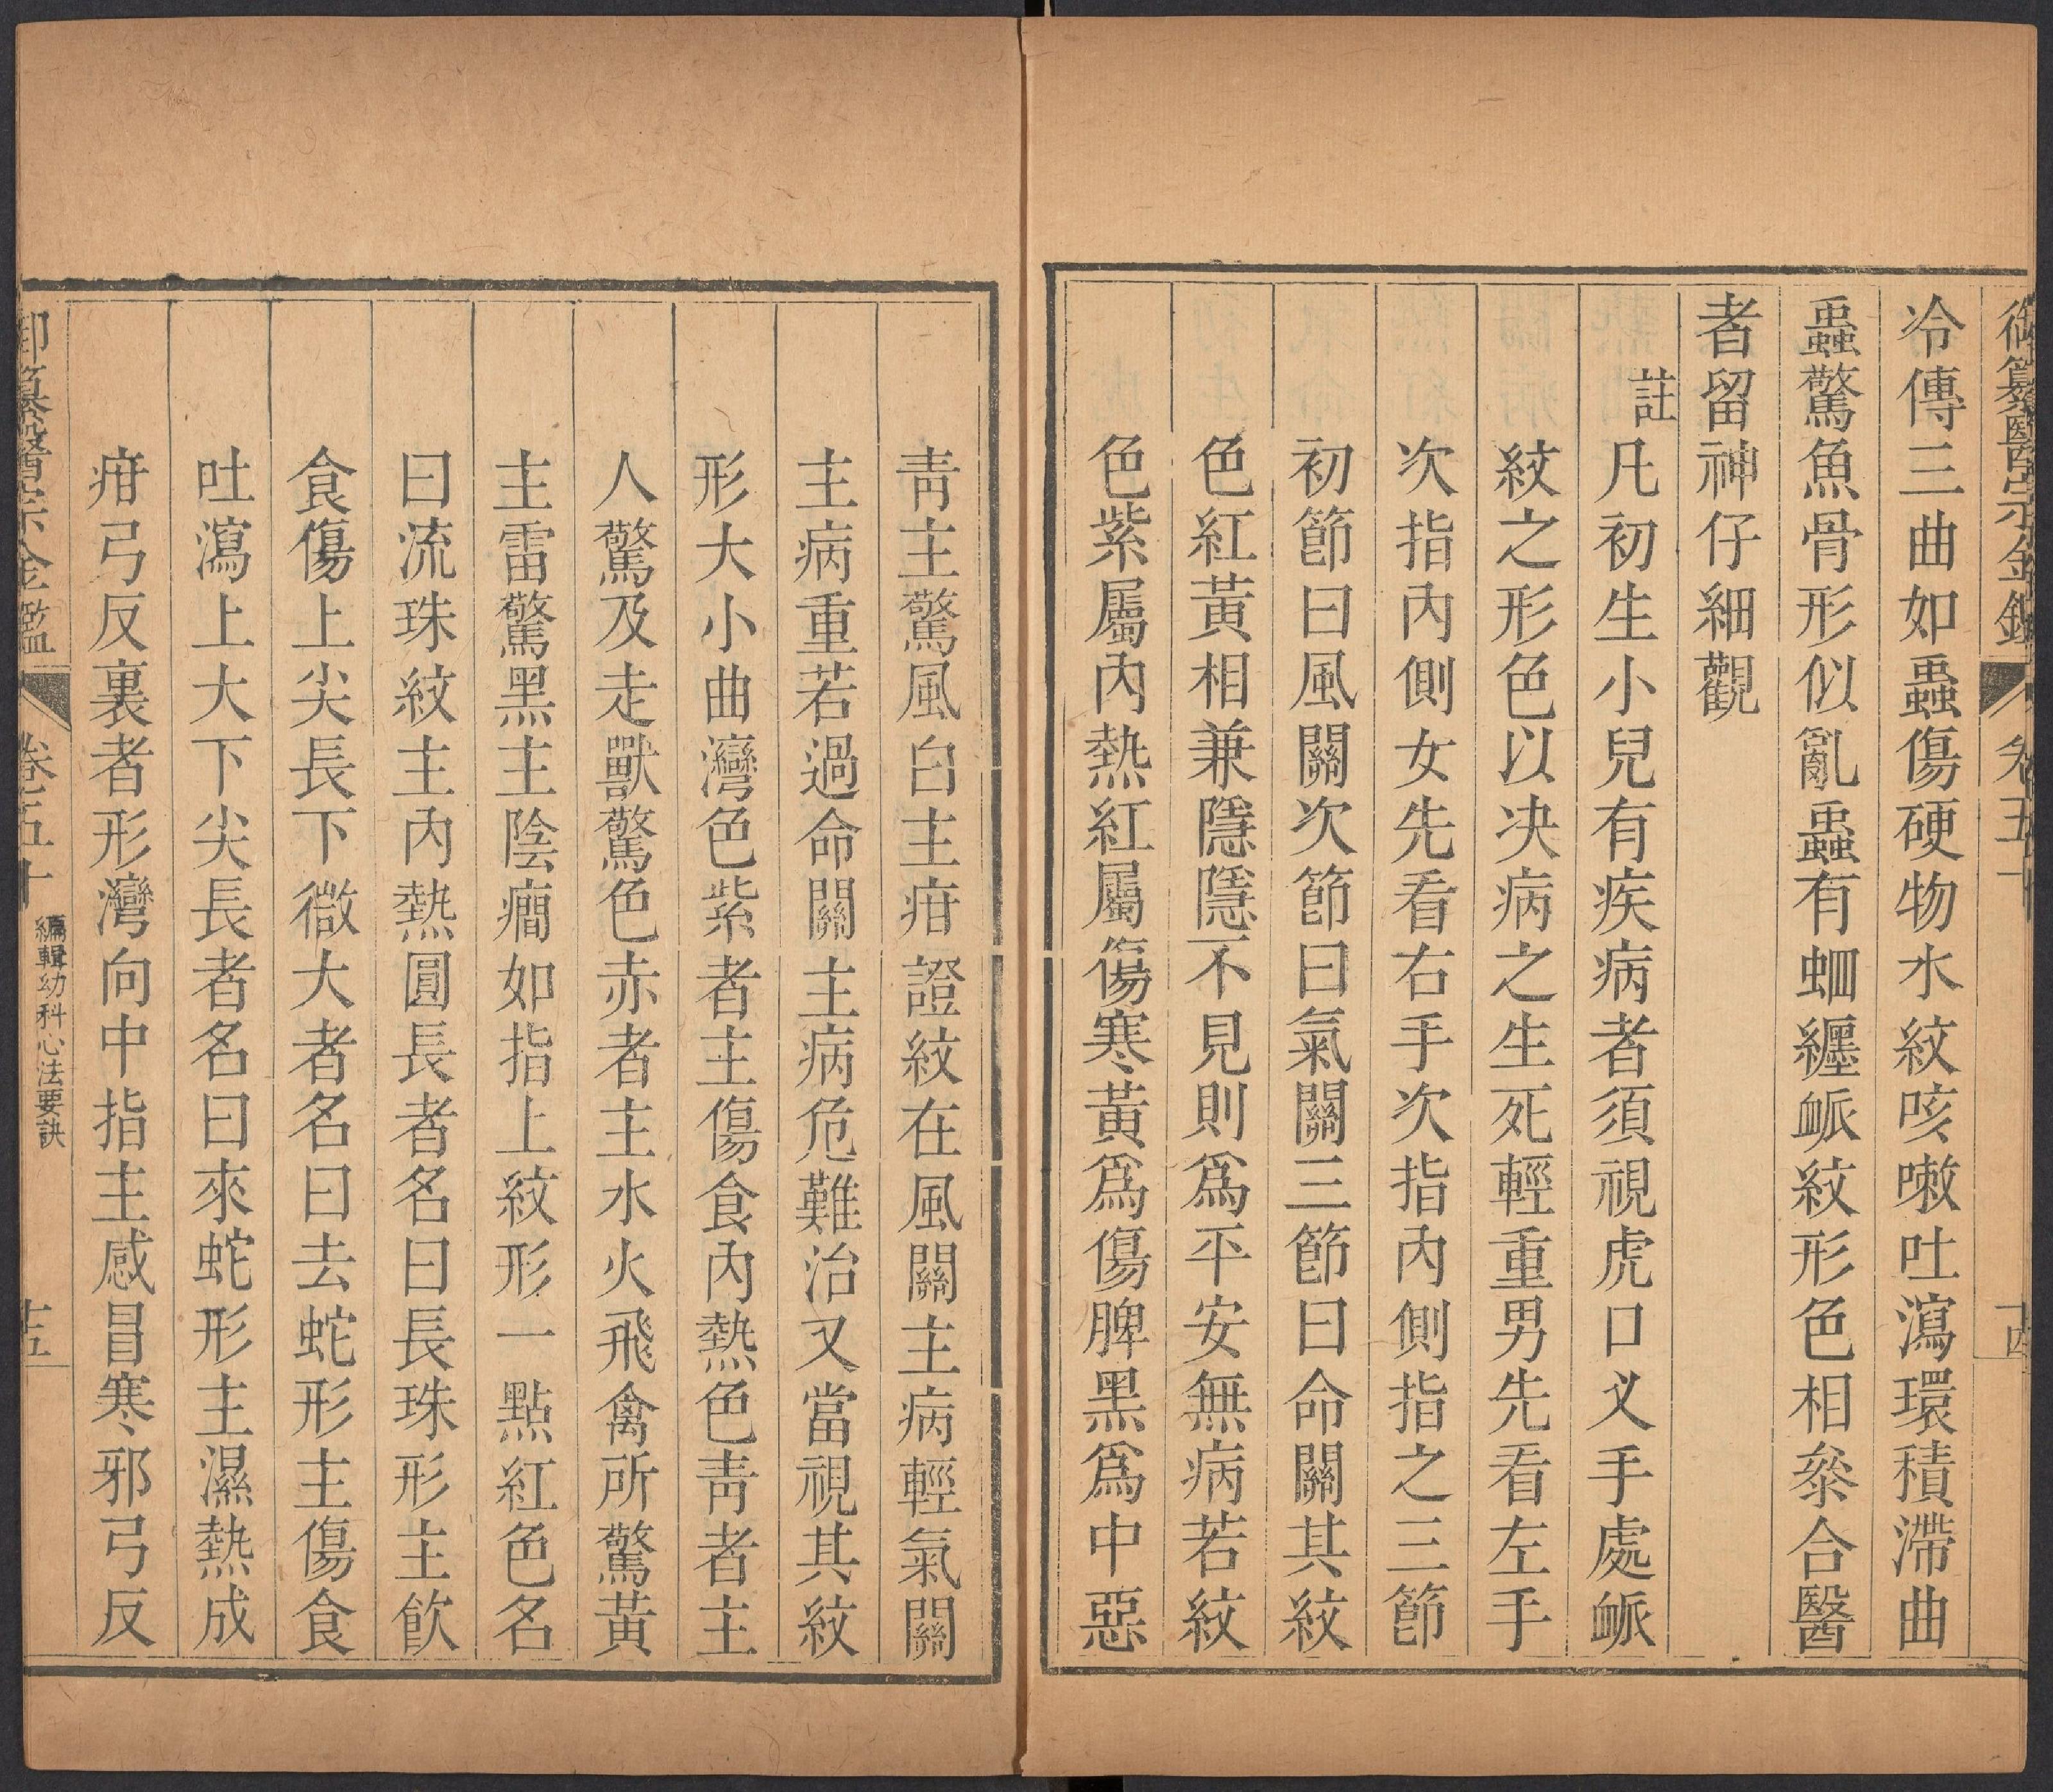 御纂醫宗金鑑 卷五十 十四
冷傳三曲如蟲傷硬物水紋咳嗽吐瀉環積滯曲
蟲驚魚骨形似亂蟲有蛔纏脈紋形色相叅合醫
者留神仔細觀
註凡初生小兒有疾病者須視虎口义手處脈
紋之形色以决病之生死輕重男先看左手
次指內側女先看右手次指內側指之三節
初節曰風關次節曰氣關三節曰命關其紋
色紅黃相兼隱隱不見則爲平安無病若紋
色紫屬內熱紅屬傷寒黃爲傷脾黑爲中惡
靑主驚風白主疳證紋在風關主病輕氣關
主病重若過命關主病危難治又當視其紋
形大小曲灣色紫者主傷食內熱色靑者主
人驚及走獸驚色赤者主水火飛禽所驚黃
主雷驚黑主陰癎如指上紋形一點紅色名
曰流珠紋主內熱圓長者名曰長珠形主飲
食傷上尖長下微大者名曰去蛇形主傷食
吐瀉上大下尖長者名曰來蛇形主濕熱成
疳弓反裏者形灣向中指主感冒寒邪弓反
御纂醫宗金鑑 卷五十 編輯幼科心法要訣 十五